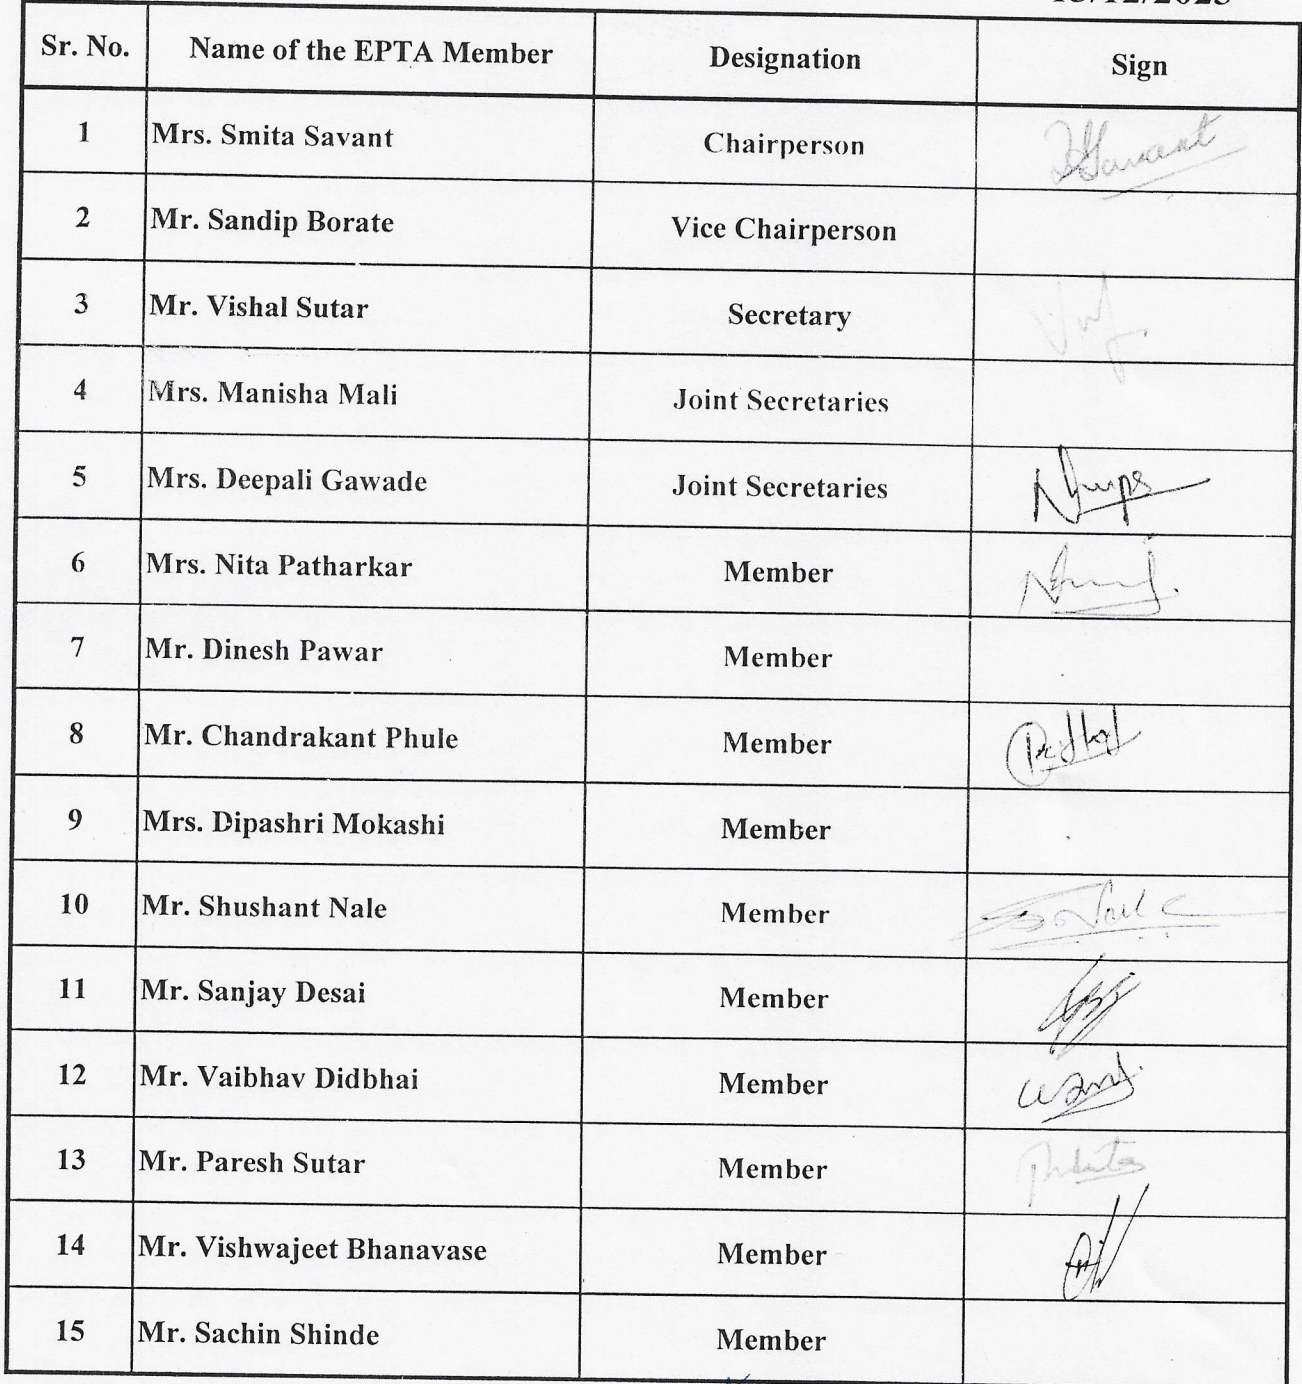 Sr. No. Name of the EPTA Member Designation Sign
1 Mrs. Smita Savant Chairperson Savant
2 Mr. Sandip Borate Vice Chairperson
3 Mr. Vishal Sutar Secretary
4 Mrs. Manisha Mali Joint Secretaries
5 Mrs. Deepali Gawade Joint Secretaries
6 Mrs. Nita Patharkar Member
7 Mr. Dinesh Pawar Member
8 Mr. Chandrakant Phule Member
9 Mrs. Dipashri Mokashi Member
10 Mr. Shushant Nale Member
11 Mr. Sanjay Desai Member
12 Mr. Vaibhav Didbhai Member
13 Mr. Paresh Sutar Member
14 Mr. Vishwajeet Bhanavase Member
15 Mr. Sachin Shinde Member